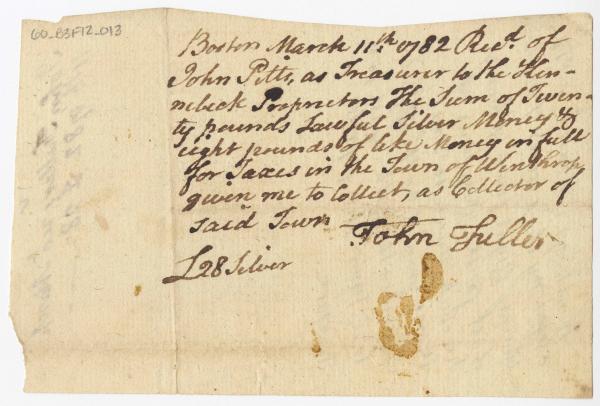 60_B3F12_013
Boston March 11.th 1782 Rec.d of
John Pitts, as Treasurer to the Ken-
nebeck Proprietors The Sum of Twen-
ty pounds Lawful Silver Money &
eight pounds of like Money in full
for Taxes in the Town of Winthrop
given me to Collect, as Collector of
said Town
John Fuller
£28 Silver